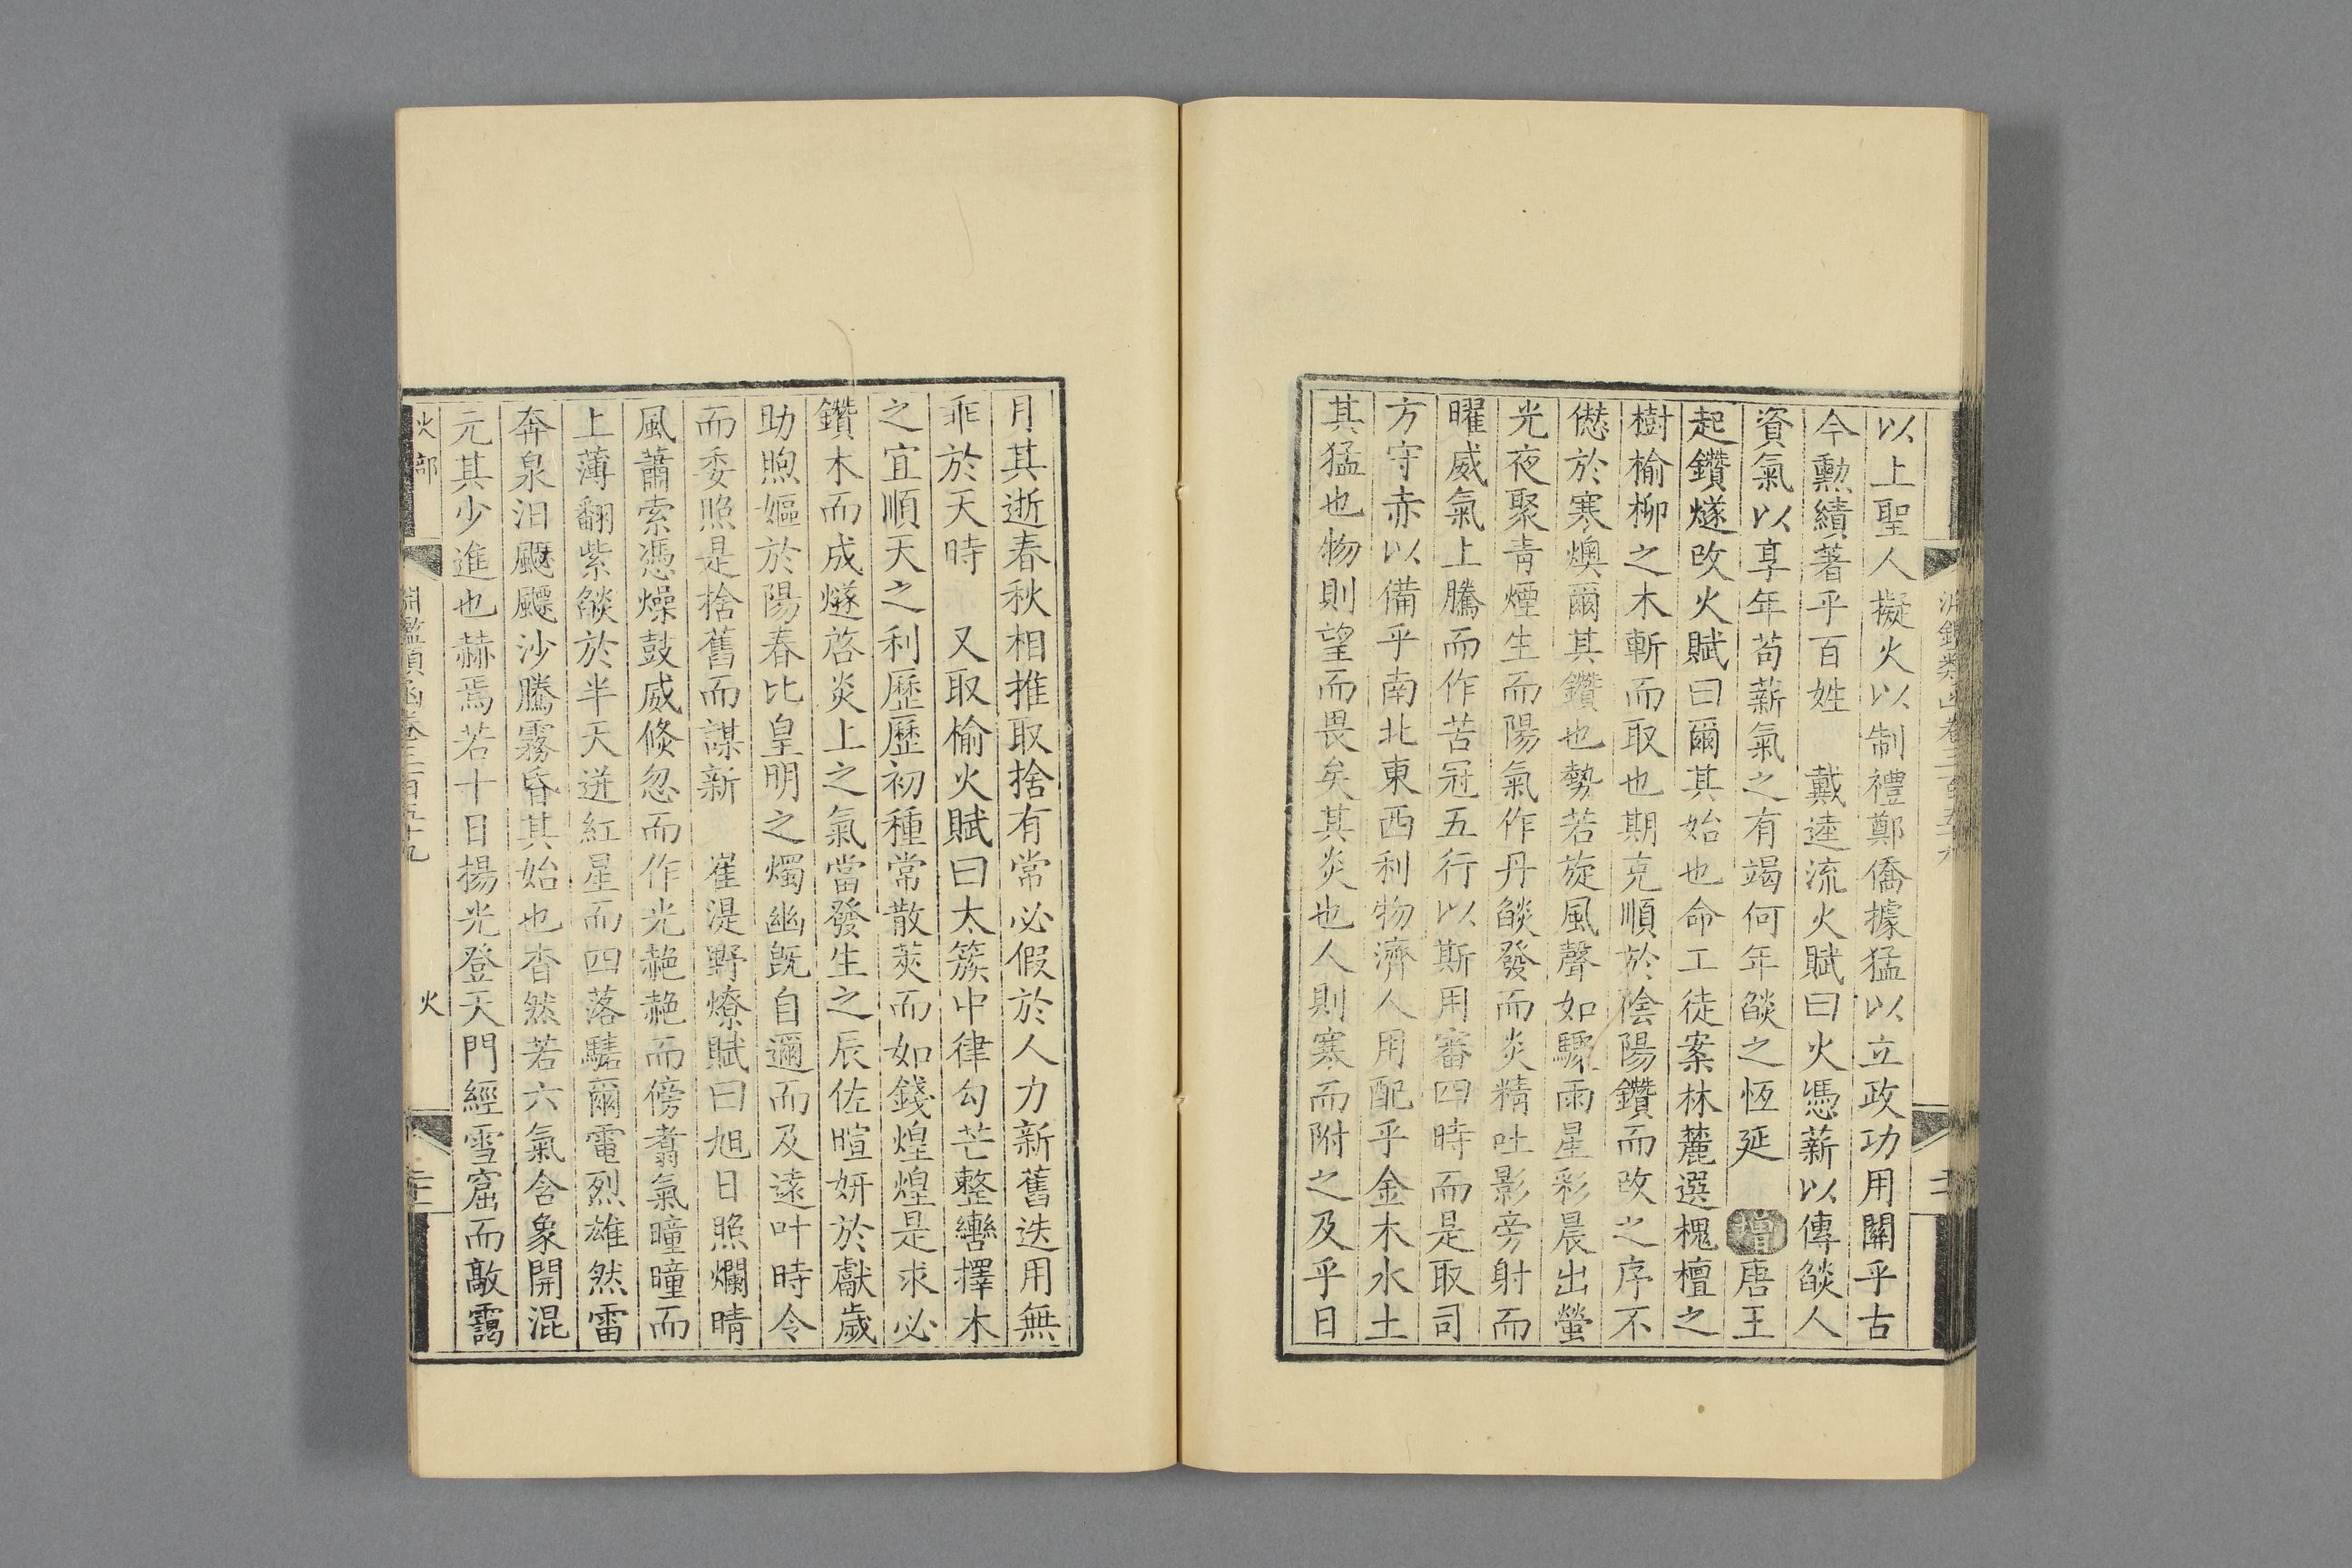 以上聖人擬火以制禮鄭僑據猛以立政功用關乎古
今勲績著乎百姓　戴逵流火賦曰火憑薪以傳燄人
資氣以享年苟薪氣之有竭何年燄之恆延　增唐王
起鑽燧改火賦曰爾其始也命工徒案林麓選槐檀之
樹榆柳之木斬而取也期克順於陰陽鑽而改之序不
僽於寒燠爾其鑽也勢若旋風聲如驟雨星彩晨出螢
光夜聚青煙生而陽氣作丹燄發而炎精吐影旁射而
曜威氣上騰而作苦冠五行以斯用審四時而是取司
方守赤以備乎南北東西利物濟人用配乎金木水土
其猛也物則望而畏矣其炎也人則寒而附之及乎日
月其逝春秋相推取捨有常必假於人力新舊迭用無
乖於天時　又取榆火賦曰太簇中律勾芒整轡擇木
之宜順天之利歷歷初種常散莢而如錢煌煌是求必
鑽木而成燧啓炎上之氣當發生之辰佐暄妍於獻歲
助煦嫗於陽春比皇明之燭幽既自邇而及遠叶時令
而委照是捨舊而謀新　崔湜野燎賦曰旭日照爛晴
風蕭索憑燥鼓威倏忽而作光赩赩而傍翥氣曈曈而
上薄翻紫燄於半天迸紅星而四落騞爾電烈雄然雷
奔泉汨飋飃沙騰霧昏其始也杳然若六氣含象開混
元其少進也赫焉若十日揚光登天門經雪窟而敲靄
火部
淵鑑類函卷三百五十九
火